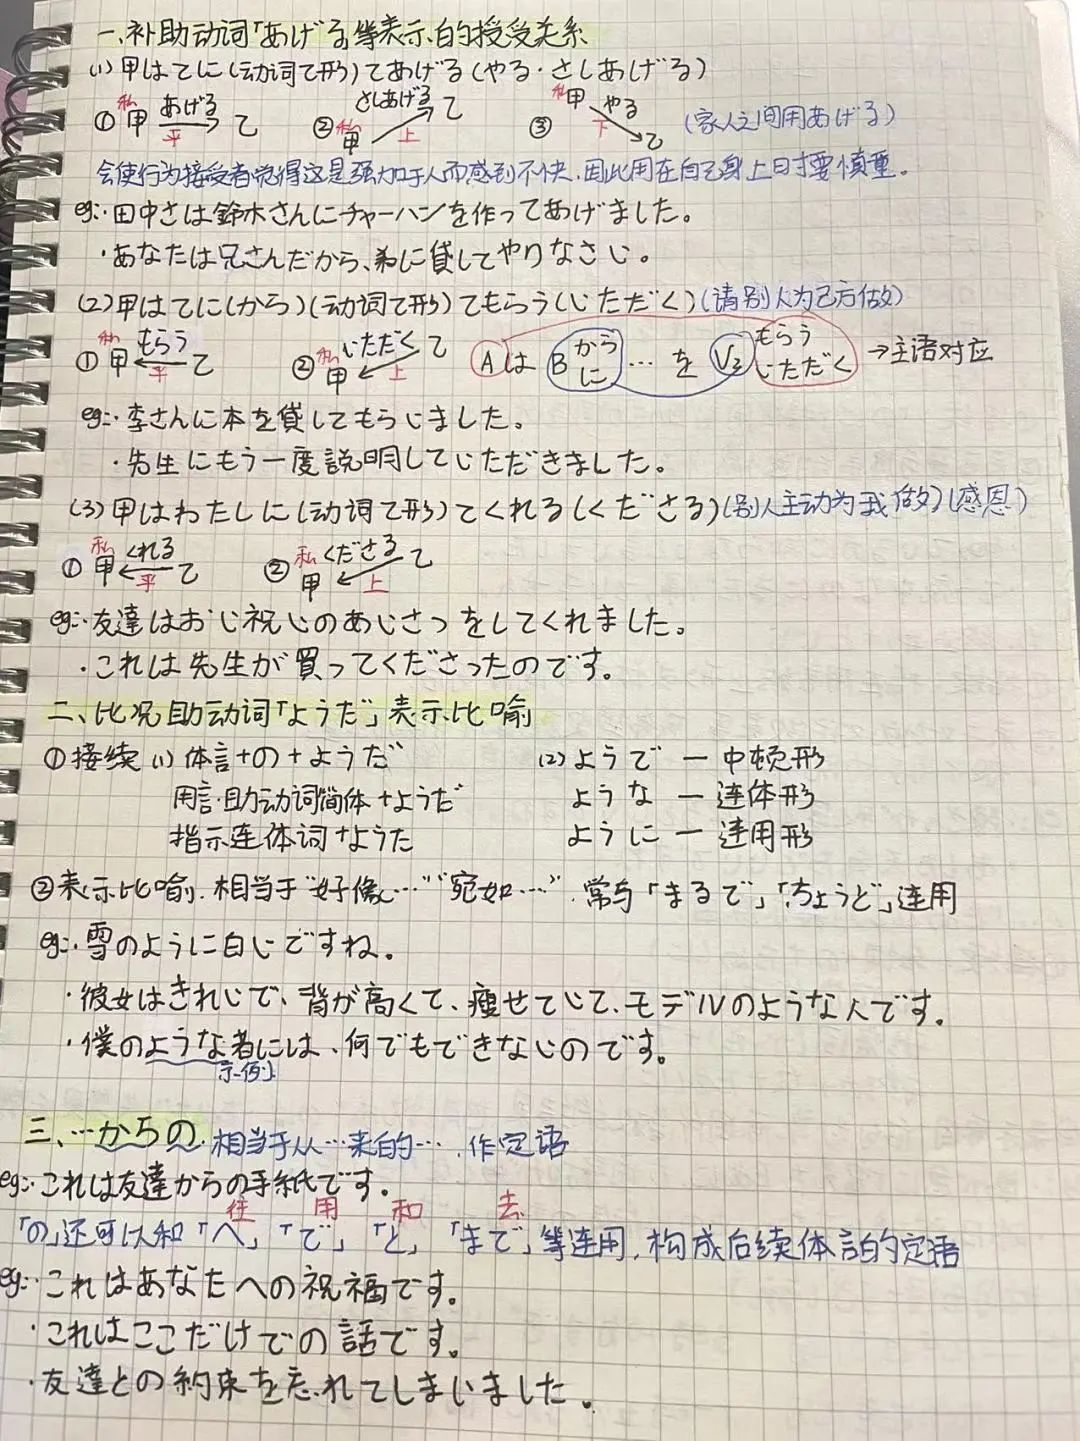 一、补助动词「あげる」等表示的授受关系
(1) 甲は乙に(动词て形)てあげる(やる・さしあげる)
① 私 甲 あげる 平 乙 ② 私 甲 さしあげる 上 乙 ③ 私 甲 やる 下 乙 (家人之间用あげる)
会使行为接受者觉得这是强加于人而感到不快,因此用在自己身上时要慎重。
eg:・田中さは鈴木さんにチャーハンを作ってあげました。
・あなたは兄さんだから、弟に貸してやりなさい。
(2) 甲は乙に(から)(动词て形)てもらう(いただく)(请别人为己方做)
① 私 甲 もらう 平 乙 ② 私 甲 いただく 上 乙 Aは B から に … を Vて もらう いただく →主语对应
eg:・李さんに本を貸してもらいました。
・先生にもう一度説明していただきました。
(3) 甲はわたしに(动词て形)てくれる(くださる)(别人主动为我做)(感恩)
① 私 甲 くれる 平 乙 ② 私 甲 くださる 上 乙
eg:・友達はお祝いのあいさつをしてくれました。
・これは先生が買ってくださったのです。
二、比况助动词「ようだ」表示比喻
①接续 (1) 体言+の+ようだ (2) ようで — 中顿形
用言・助动词简体+ようだ ような — 连体形
指示连体词+ようた ように — 连用形
②表示比喻.相当于"好像…""宛如…".常与「まるで」「ちょうど」连用
eg:・雪のように白いですね。
・彼女はきれいで、背が高くて、痩せていて、モデルのような人です。
・僕のような者には、何でもできないのです。
示例
三、…からの.相当于从…来的….作定语
eg:・これは友達からの手紙です。
往 用 和 去
「の」还可以和「へ」「で」「と」「まで」等连用,构成后续体言的定语
eg:・これはあなたへの祝福です。
・これはここだけでの話です。
・友達との約束を忘れてしまいました。